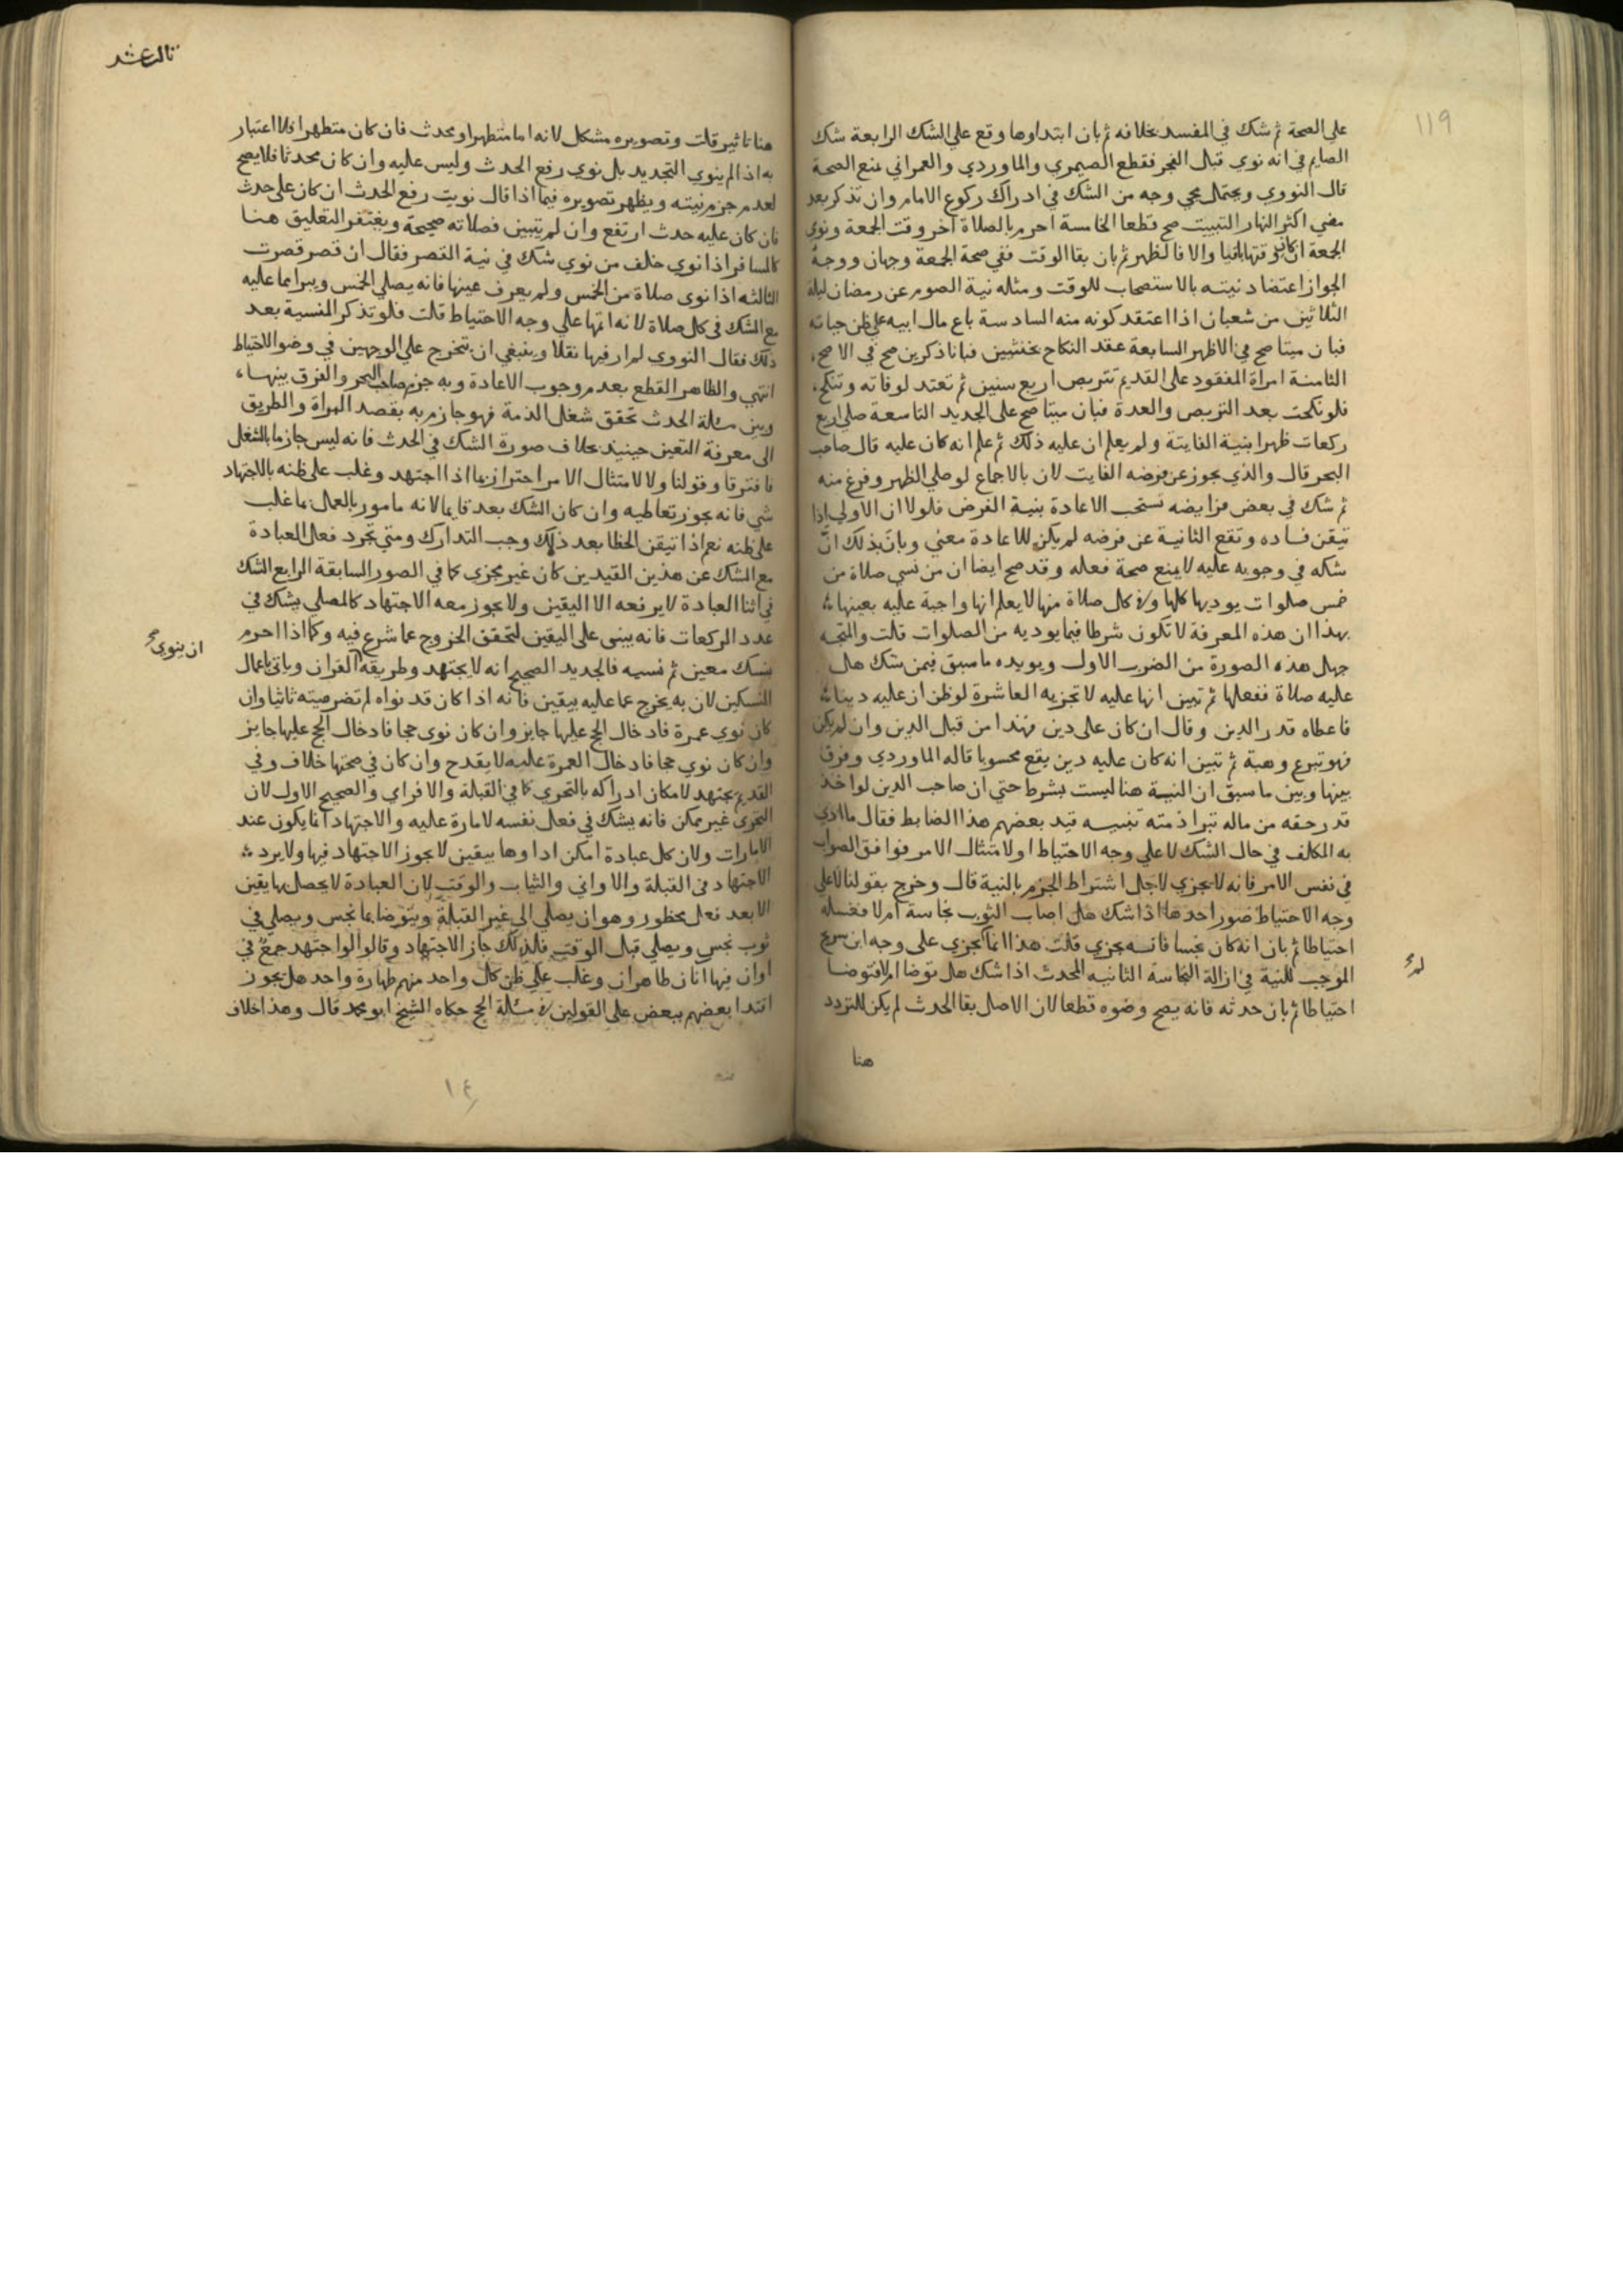 ١١٩
على الصحة ثم شك في المفسد بخلافه ثم بان ابتداوها وقع على الشك الرابعة شك
الصايم في انه نوي قبل الفجر فقطع الصيمري والماوردي والعمراني بمنع الصحة
قال النووي ويحتمل مجي وجه من الشك في ادراك ركوع الامام وان تذكر بعد
مضي اكثر النهار التبييت صح قطعا الخامسة احرم بالصلاة اخر وقت الجمعة ونوي
الجمعة ان كان وقتها باقيا والا فالظهر ثم بان بقا الوقت ففي صحة الجمعة وجهان ووجه
الجواز اعتضاد نيته بالاستصحاب للوقت ومثله نية الصوم عن رمضان ليلة
الثلاثين من شعبان اذا اعتقد كونه منه السادسة باع مال ابيه على ظن حياته
فبان ميتا صح في الاظهر السابعة عقد النكاح بخنثيين فبانا ذكرين صح في الاصح
الثامنة امراة المفقود على القديم تتربص اربع سنين ثم تعتد لوفاته وتنكح
فلو نكحت بعد التربص والعدة فبان ميتا صح على الجديد التاسعة صلى اربع
ركعات ظهرا بنية الفايتة ولم يعلم ان عليه ذلك ثم علم انه كان عليه قال صاحب
البحر قال والدي يجوز عن فرضه الفايت لان بالاجماع لو صلى الظهر وفرغ منه
ثم شك في بعض فرايضه تستحب الاعادة بنية الفرض فلولا ان الاولي اذا
تيقن فساده وتقع الثانية عن فرضه لم يكن للاعادة معني وبان بذلك ان
شكه في وجوبه عليه لا يمنع صحة فعله وقد صح ايضا ان من نسي صلاة من
خمس صلوات يوديها كلها وفي كل صلاة منها لا يعلم انها واجبة عليه بعينها
بهذا ان هذه المعرفة لا تكون شرطا فيما يوديه من الصلوات قلت والمتجه
جهل هذه الصورة من الضرب الاول ويويده ما سبق فيمن شك هل
عليه صلاة ففعلها ثم تبين انها عليه لا تجزيه العاشرة لو ظن ان عليه دينا
فاعطاه قدر الدين وقال ان كان على دين فهذا من قبل الدين وان لم يكن
فهو تبرع وهبة ثم تبين انه كان عليه دين يقع محسوبا قاله الماوردي وفرق
بينها وبين ما سبق ان النية هنا ليست بشرط حتي ان صاحب الدين لو اخذ
قدر حقه من ماله تبرا ذمته تنبيه قيد بعضهم هذا الضابط فقال ما ادي
به المكلف في حال الشك لا على وجه الاحتياط ولا متثال الامر فوافق الصواب
في نفس الامر فانه لا يجزي لاجل اشتراط الجزم بالنية قال وخرج بقولنا لا على
وجه الاحتياط صور احدها اذا شك هل اصاب الثوب نجاسة ام لا فغسله
احتياطا ثم بان انه كان نجسا فانه يجزي قلت هذا انما يجزي على وجه ابن سريج
الموجب للنية في ازالة النجاسة الثانيه المحدث اذا شك هل توضا ام لا فتوضا
احتياطا ثم بان حدثه فانه يصح وضوه قطعا لان الاصل بقا الحدث لم يكن للتردد
هنا
ثالث عشر
هنا تاثير قلت وتصويره مشكل لانه اما متطهر او محدث فان كان متطهرا فلا اعتبار
به اذ لم ينوي التجديد بل نوي رفع الحدث وليس عليه وان كان محدثا فلا يصح
لعدم جزم نيته ويظهر تصويره فيما اذا قال نويت رفع الحدث ان كان على حدث
فان كان عليه حدث ارتفع وان لم يتبين فصلاته صحيحة ويغتفر التعليق هنا
كالمسافر اذا نوي خلف من نوي شك في نية القصر فقال ان قصر قصرت
الثالثه اذا نوي صلاة من الخمس ولم يعرف عينها فانه يصلي الخمس ويبرا مما عليه
مع الشك في كل صلاة لانه اتها على وجه الاحتياط قلت فلو تذكر المنسية بعد
ذلك فقال النووي لم ار فيها نقلا وينبغي ان يتخرج على الوجهين في وضو الاحتياط
انتهي والظاهر القطع بعدم وجوب الاعادة وبه جزم صاحب البحر والفرق بينها
وبين مسئلة الحدث تحقق شغل الذمة فهو جازم به بقصد البراة والطريق
الى معرفة التعين حينيد بخلاف صورة الشك في الحدث فانه ليس جازما بالشغل
فافترقا وقولنا ولا لامتثال الامر احتراز بما اذا اجتهد وغلب على ظنه بالاجتهاد
شي فانه يجوز تعاطيه وان كان الشك بعد قايما لانه مامور بالعمل بما غلب
على ظنه نعم اذا تيقن الخطا بعد ذلك وجب التدارك ومتي تجرد فعل العبادة
مع الشك عن هذين القيدين كان غير مجزي كما في الصور السابقة الرابع الشك
في اثنا العبادة لا يرفعه الا اليقين ولا يجوز معه الاجتهاد كالمصلي يشك في
عدد الركعات فانه يبني على اليقين لتحقق الخروج عما شرع فيه وكما اذا احرم
بنسك معين ثم نسيه فالجديد الصحيح انه لا يجتهد وطريقه القران وياتي باعمال
ان ينوي صح
النسكين لان به يخرج عما عليه بيقين فانه اذا كان قد نواه لم تضر نيته ثانيا وان
كان نوي عمرة فادخال الحج عليها جايز وان كان نوي حجا فادخال الحج عليها جايز
وان كان نوي حجا فادخال العمرة عليه لا يقدح وان كان في صحتها خلاف وفي
القديم يجتهد لامكان ادراكه بالتحري كما في القبلة والافراي والصحيح الاول لان
التحري غير ممكن فانه يشك في فعل نفسه لا مارة عليه والاجتهاد انما يكون عند
الامارات ولان كل عبادة امكن اداوها بيقين لا يجوز الاجتهاد فيها ولا يرد
الاجتهاد في القبلة والاواني والثياب والوقت لان العبادة لا يحصل بها يقين
الا بعد فعل محظور وهو ان يصلي الى غير القبلة ويتوضا بما نجس ويصلي في
ثوب نجس ويصلي قبل الوقت فلذلك جاز الاجتهاد وقالوا لو اجتهد جمع في
اوان فيها انان طاهران وغلب على ظن كل واحد منهم طهارة واحد هل يجوز
اقتدا بعضهم ببعض على القولين في مسئلة الحج حكاه الشيخ ابو محمد قال وهذا خلاف
١٤